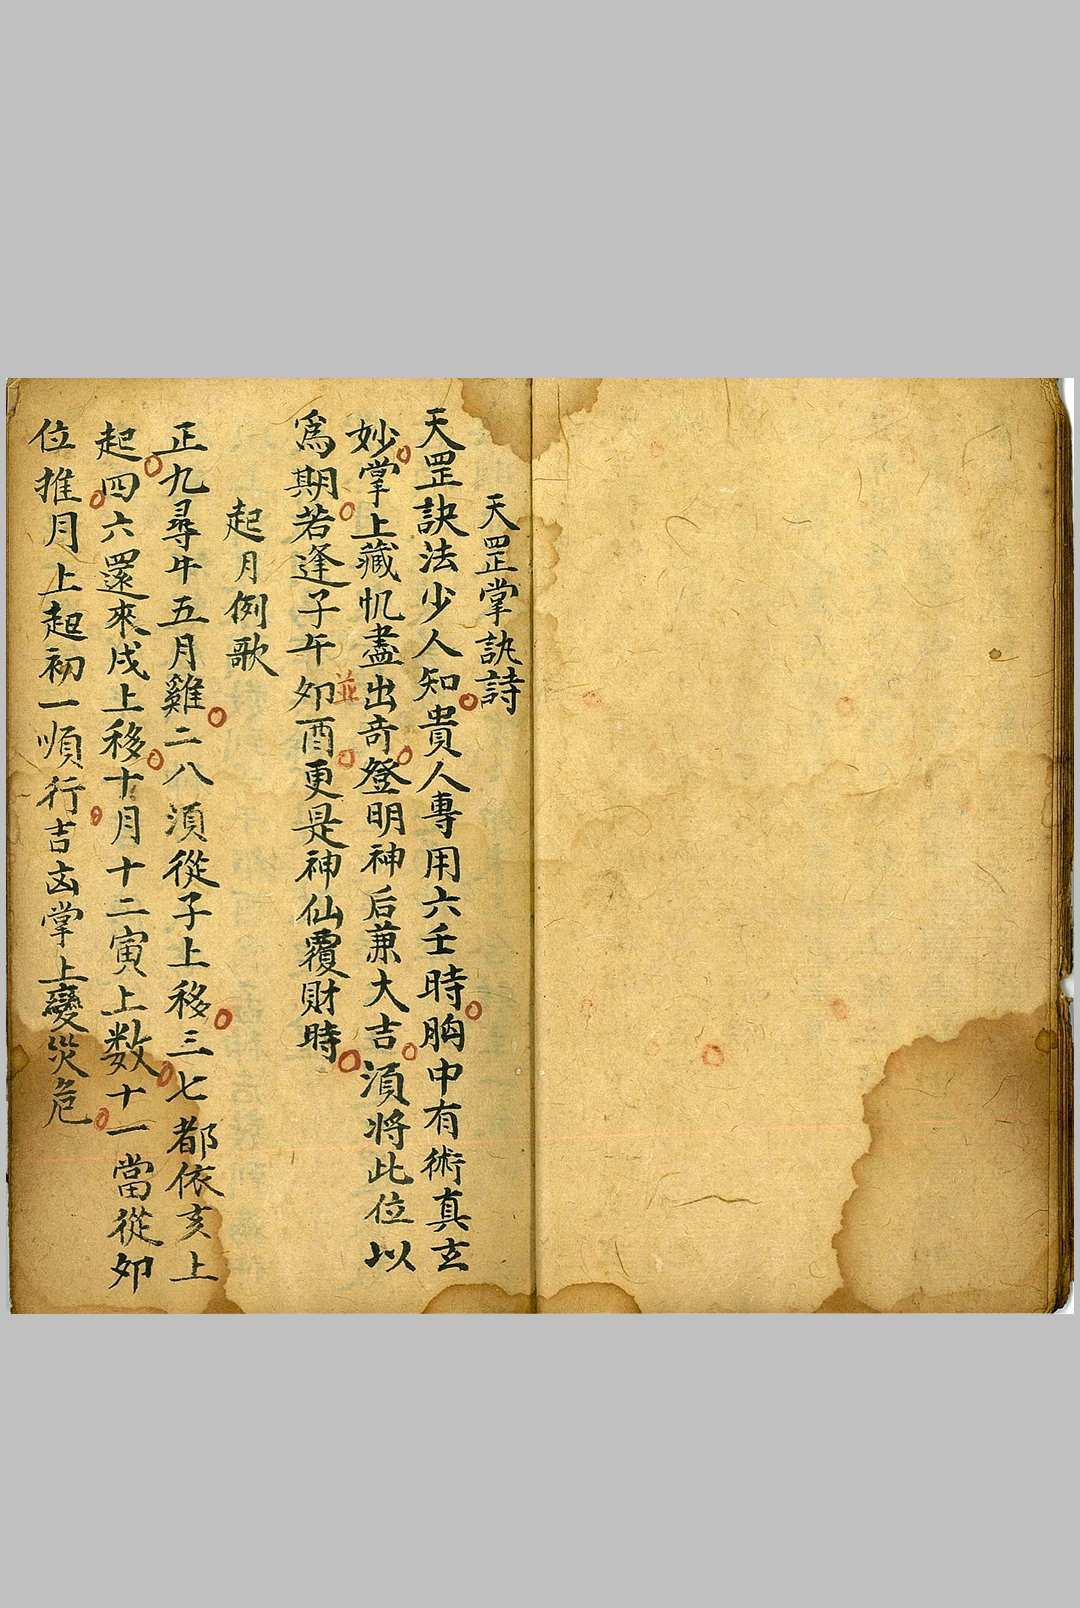 天罡掌訣詩
天罡訣法少人知貴人專用六壬時胸中有術真玄
妙掌上藏机盡出奇登明神后兼大吉須將此位以
為期若逢子午並夘酉更是神仙覆財時
起月例歌
正九尋牛五月雞二八須從子上移三七都依亥上
起四六還來戌上移十月十二寅上数十一當從夘
位推月上起初一順行吉凶掌上變災危